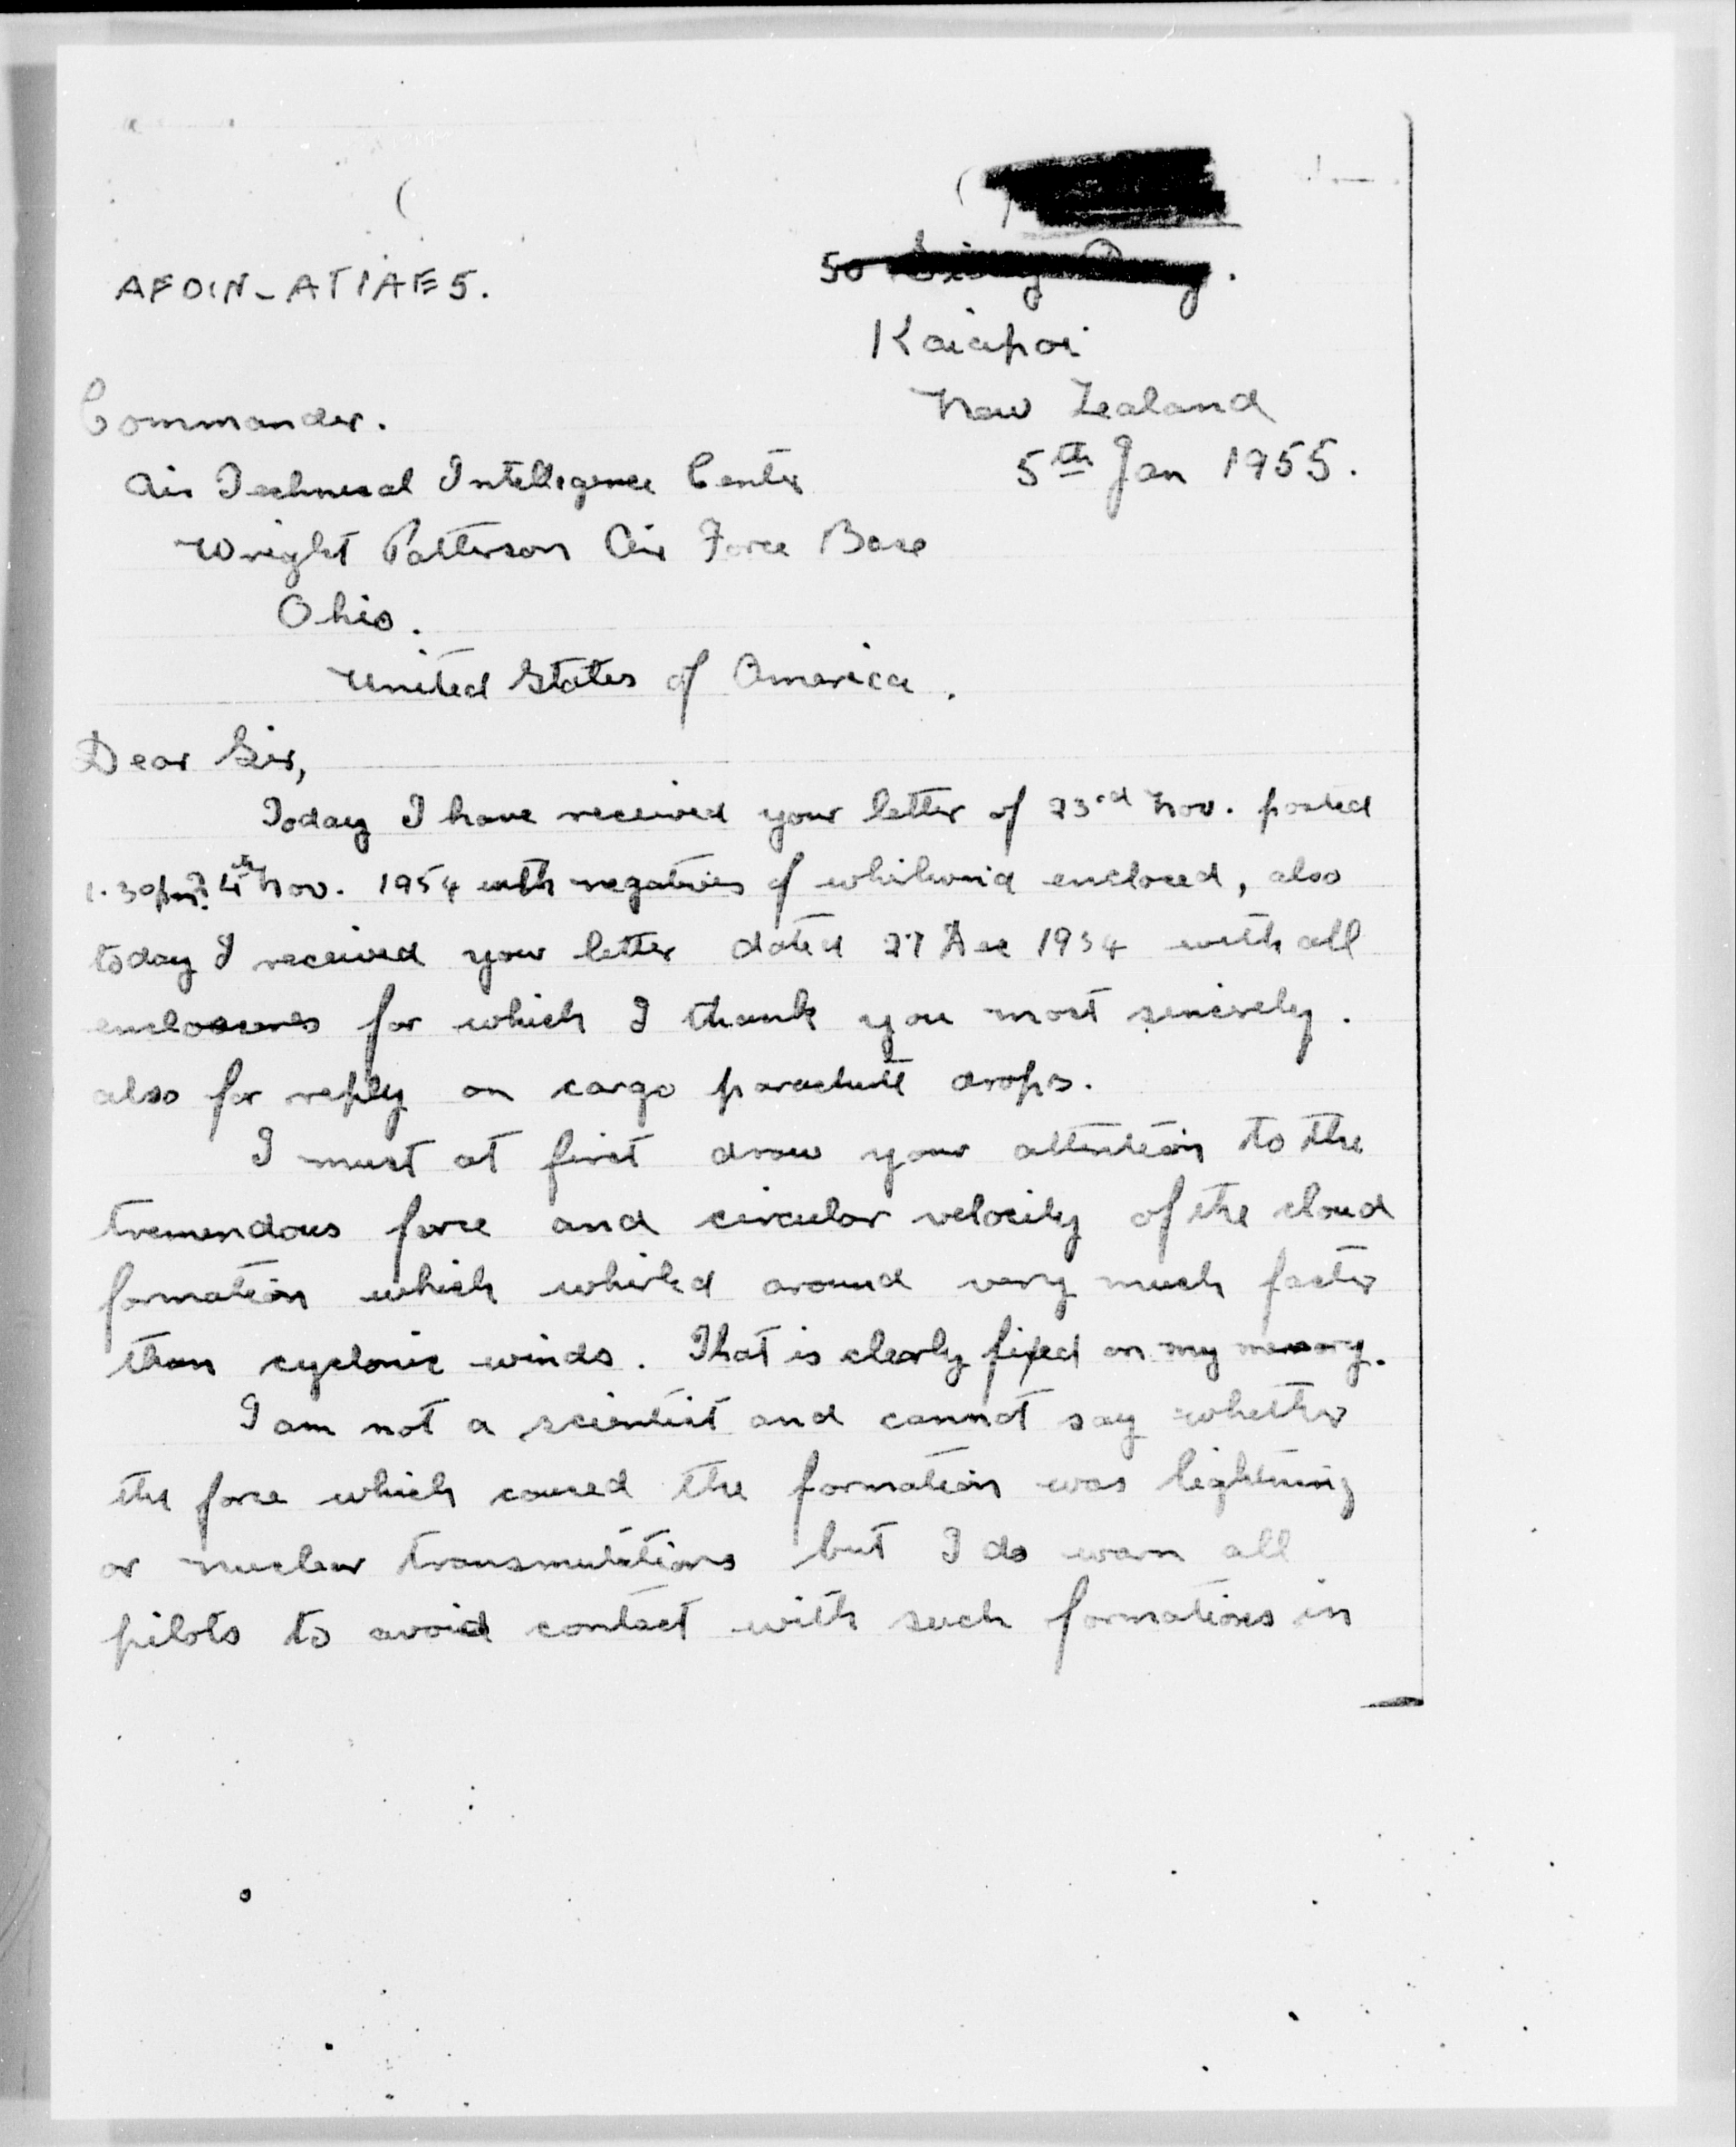 AFOIN-ATIAE5.
50
Kaiapoi
New Zealand
5th Jan 1955.
Commander.
Air Technical Intelligence Center
Wright Patterson Air Force Base
Ohio.
United States of America.
Dear Sir,
Today I have received your letter of 23rd Nov. posted
1.30pm Nov. 1954 with negatives of whirlwind enclosed, also
today I received your letter dated 27 Dec 1954 with all
enclosures for which I thank you most sincerely.
also for reply on cargo parachute drops.
I must at first draw your attention to the
tremendous force and circular velocity of the cloud
formation which whirled around very much faster
than cyclonic winds. That is clearly fixed on my memory.
I am not a scientist and cannot say whether
the force which caused the formation was lightning
or nuclear transmutations but I do warn all
pilots to avoid contact with such formations in